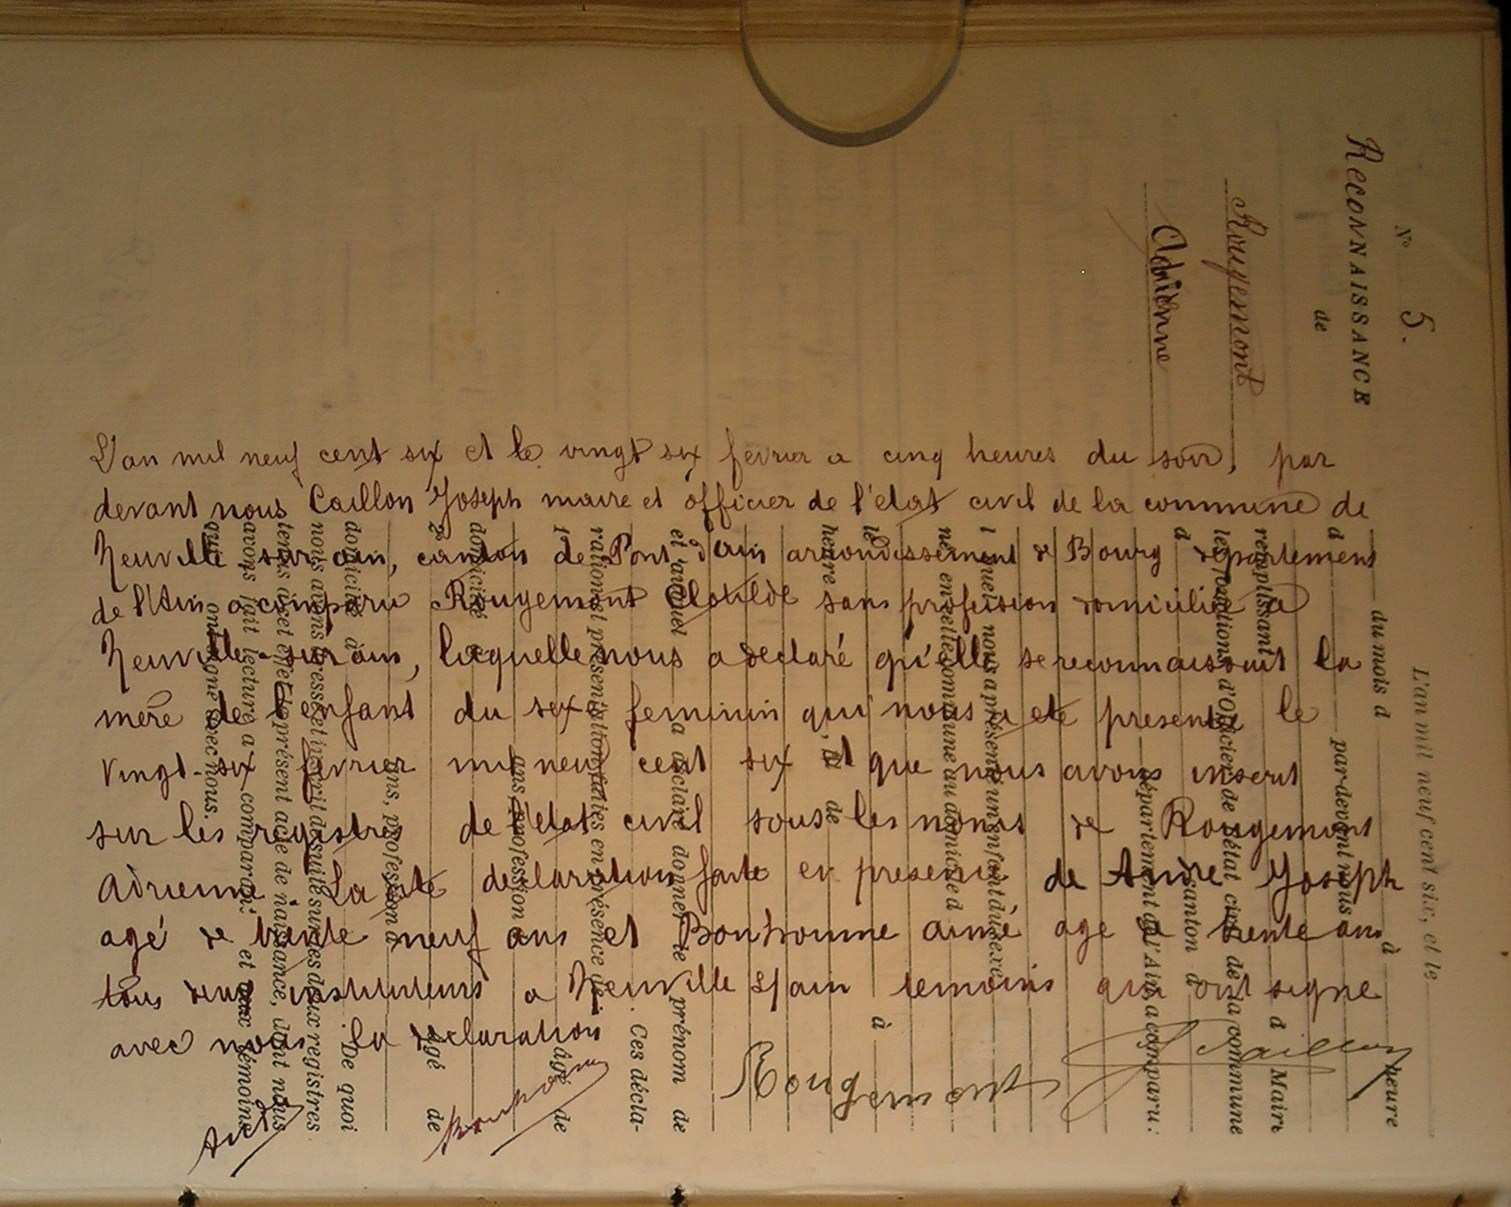 N° 5.
RECONNAISSANCE
de
Rougemont
Adrienne
L'an mil neuf cent six et le vingt six fevrier a cinq heures du soir, par
devant nous Caillon Joseph maire et officier de l'etat civil de la commune de
Neuville sur ain, canton de Pont d'ain arrondissement de Bourg departement
de l'Ain a comparu Rougemont Clotilde sans profession domiciliée a
Neuville-sur ain, laquelle nous a declaré qu'elle se reconnaissait la
mère de l'enfant du sexe feminin qui nous a eté presenté le
vingt-six fevrier mil neuf cent six et que nous avons inscrit
sur les registres de l'etat civil sous les noms de Rougemont
Adrienne. La dte declaration faite en presence de Joseph
agé de trente neuf ans et Bonhomme aimé age de trente ans
tous deux instituteurs a Neuville s/ain temoins qui ont signe
avec nous la declaration
Caillon
Rougemont
Bonhomme
L'an mil neuf cent six, et le
du mois d à heure
d par-devant nous
remplissant d Maire
les fonctions d'Officier de l'état civil de la commune
d canton d
département de l'Ain a comparu:
lequel nous a présenté un enfant du sexe
né en cette commune au domicile d
le à
heure , de
et auquel a déclaré donner le prénom de
Ces décla-
rations et présentation faites en présence de:
1° âgé de
ans, profession d
domicilié
2° âgé de
ans, profession d
domicilié à De quoi
nous avons dressé et inscrit de suite sur les deux registres
tenus à cet effet le présent acte de naissance, dont nous
avons fait lecture a comparant et aux témoins
qui ont signé avec nous.